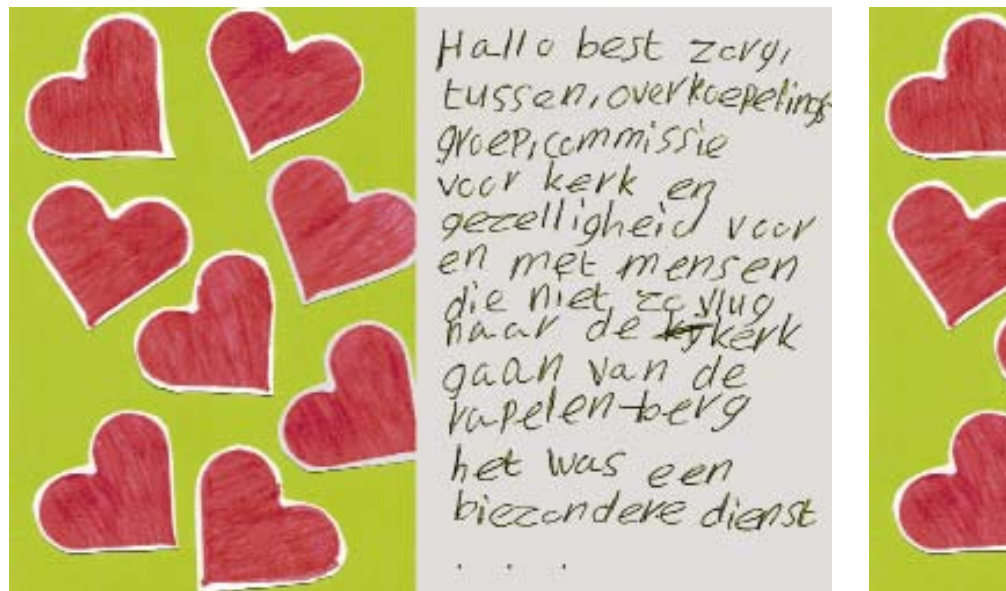 Hallo best zorg,
tussen, overkoepelings-
groep, commissie
voor kerk en
gezelligheid voor
en met mensen
die niet zo vlug
naar de kerk
gaan van de
rapelen-berg
het was een
biezondere dienst
. . .